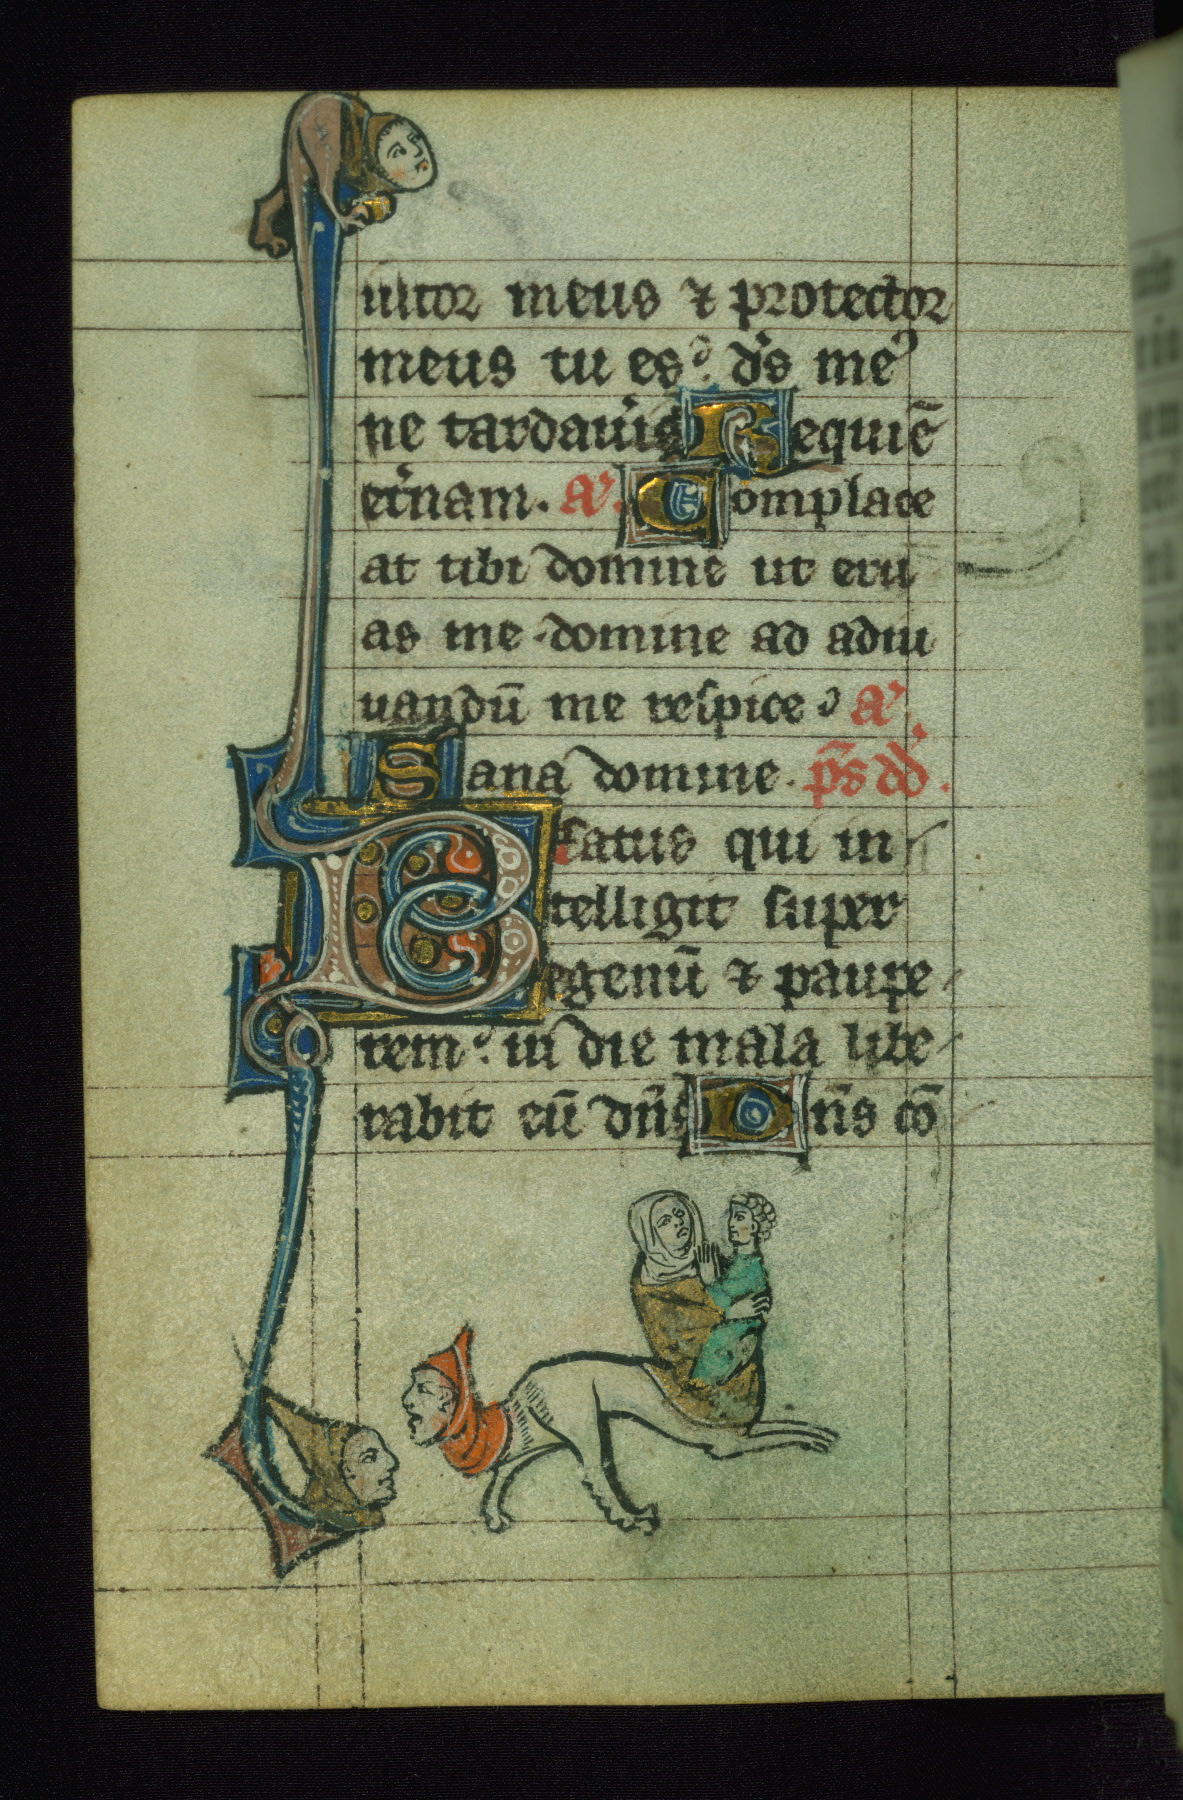 iutor meus ⁊ protector
meus tu es. ds me
ne tardaveris Requiē
etnam. A. Complace
at tibi domine ut eru
as me domine ad adiu
uandū me respice A.
Sana domine. ps dd.
Beatus qui in
telligit super
egenū ⁊ paupe
rem. in die mala libe
rabit eū dns Dns cō